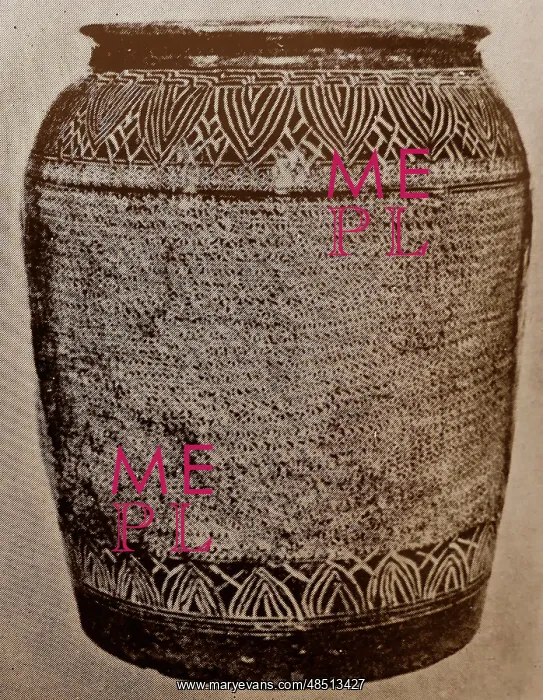 ME
PL
ME
PL
www.maryevans.com/48513427